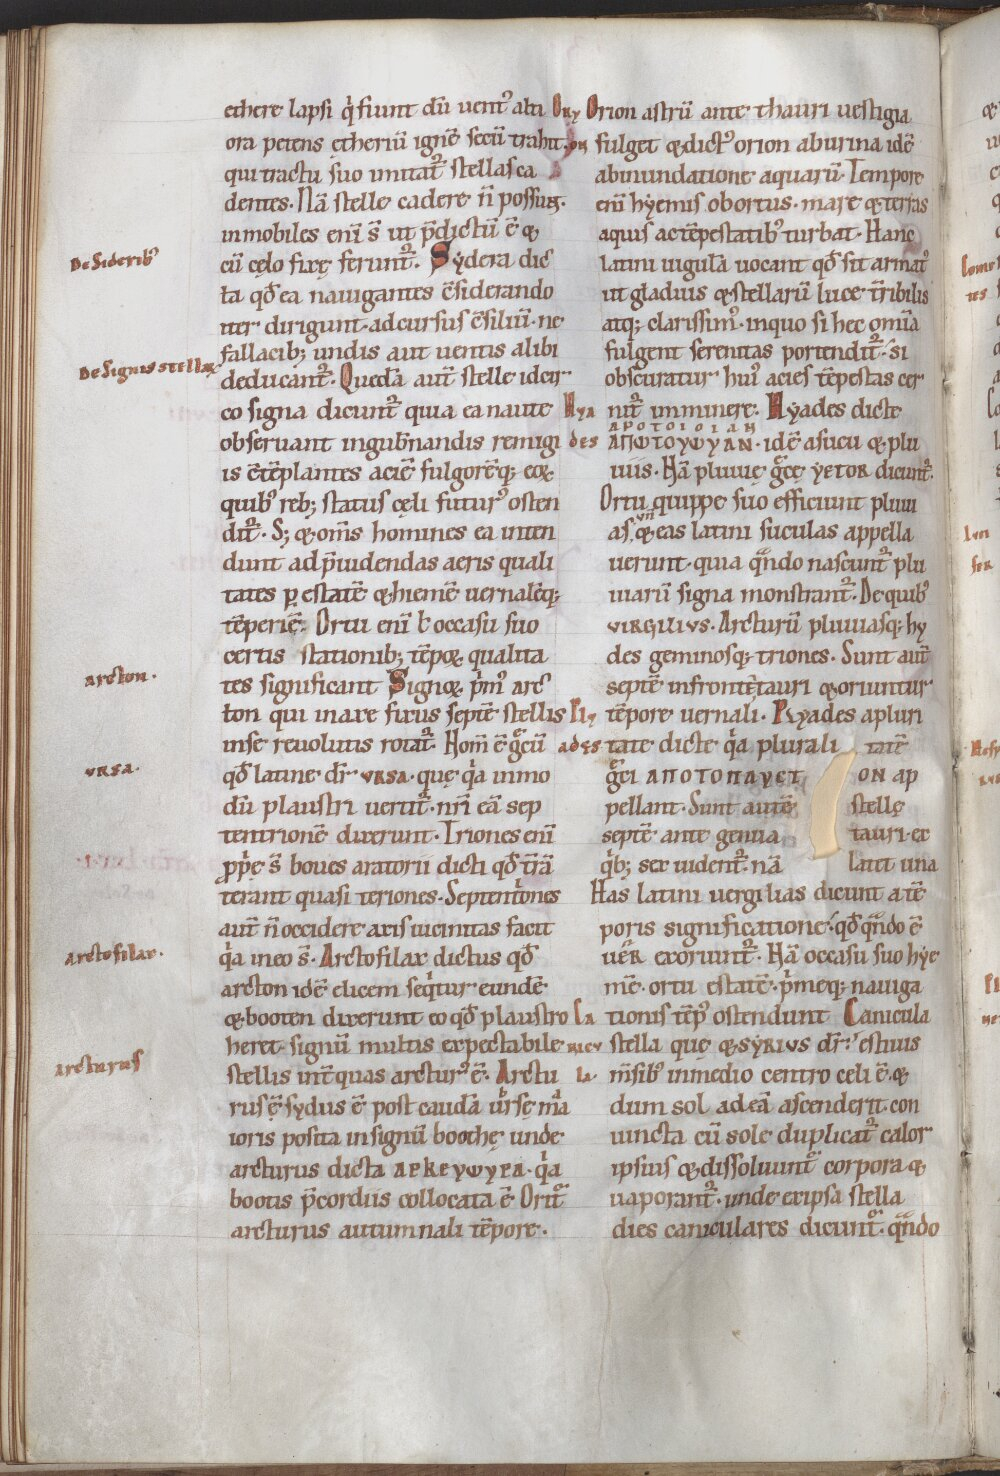 ethere lapsi q̍ fiunt dū uent᾿ alti
ora petens ętheriū ignē secū trahit.
qui tractu suo imitat᷑ stellas ca
dentes. Nā stelle cadere n̄ possunt.
inmobiles enī s̄ ut p̄dictū ē &
cū cęlo fixę ferunt᷑. Sydera dic
De Siderib᾿
ta qđ ea nauigantes c̄siderando
iter dirigunt. ad cursus c̄siliū. ne
fallacib; undis aut uentis alibi
De Signis stellaꝝ
deducant᷑. Quedā aut̄ stelle idcir
co signa dicunt᷑ quia ea naute
obseruant in gub̄nandis remigi
is c̄tēplantes aciē fulgorēq; eoꝝ
quib᾿ reb; status cęli futur᾿ osten
dit᷑. S; & om̄s homines ea inten
dunt ad p̄uidendas aeris quali
tates ꝑ estatē & hiemē uernalēq;
tēperiē. Ortu enī ł occasu suo
certis stationib; tēpoꝝ qualita
arcton.
tes significant Signoꝝ p̍m᾿ arc
ton qui in axe fixus septē stellis
in se reuolutis rotat᷑. Hom̄ ē gr̄cū
vrsa.
qđ latine dr̄ vrsa. quę q̍a in mo
dū plaustri uertit᷑. nr̄i eā sep
tentrionē dixerunt. Triones enī
ꝓp̍ę s̄ boues aratorii dicti qđ tr̄ā
terant quasi teriones. Septent̍ones
aut̄ n̄ occidere axis uicinitas facit
arctofilax.
q̍a in eo s̄. Arctofilax dictus qđ
arcton idē elicem seq̍tur eundē
& booten dixerunt eo qđ plaustro
heret. signū multis expectabile
arcturus
stellis int̄ quas arctur᾿ ē. Arctu
rus ē sydus ē post caudā ursę ma
ioris posita in signū boothę unde
arcturus dicta ΑΡΚΕΥΨΥΡΑ. q̍a
bootis p̄cordiis collocata ē Orit᷑
arcturus autumnali tēpore.
Ory on
Orion astrū ante thauri uestigia
fulget & dict᾿ orion ab urina idē
ab inundatione aquarū. Tempore
enī hyemis obortus. mare & terras
aquis ac tēpestatib᾿ turbat. Hanc
latini uigula uocant qđ sit armat᾿
ut gladius & stellarū luce tr̄ibilis
atq; clarissim᾿. in quo si hec om̄ia
fulgent serenitas portendit᷑. si
obscuratur hui᾿ acies tēpestas cer
Hya des
nit᷑ imminere. Hyades dicte
ΑΡΟΤΟΙΟΙΑΝ
ΑΠΨΤΟΥΨΥΑΝ. idē a sucu & plu
uiis. Nā pluuię gr̄ce ΥΕΤΟR dicunt᷑.
Ortu quippe suo efficiunt pluui
as. un̄
& eas latini suculas appella
uerunt. quia qn̄do nascunt᷑ plu
uiarū signa monstrant᷑. De quib᾿
VIRGILIVS. Arcturū pluuiasq; hy
des geminosq; triones. Sunt aut̄
septē in fronte tauri & oriuntur
Ply ades
tēpore uernali. Plyades a pluri
tate dicte q̍a plurali tatē
gr̄ci ΑΠΟΤΟΠΛΥϹΤ ΟΝ ap
pellant. Sunt autē stellę
septē ante genua tauri. ex
q̍b; sex uident᷑. nā latet una
Has latini uergilias dicunt a tē
poris significatione. qđ qn̄do ē
uēr exoriunt᷑. Nā occasu suo hye
mē. ortu estatē. p̍meq; nauiga
Ca nicu la.
tionis tēp᾿ ostendunt Canicula
stella quę & SYRIVS dr̄. estiuis
m̄sib᾿ in medio centro celi ē. &
dum sol ad eā ascenderit. con
iuncta cū sole duplicat᷑ calor
ipsius & dissoluunt᷑ corpora &
uaporant᷑. unde ex ipsa stella
dies caniculares dicunt᷑. qn̄do